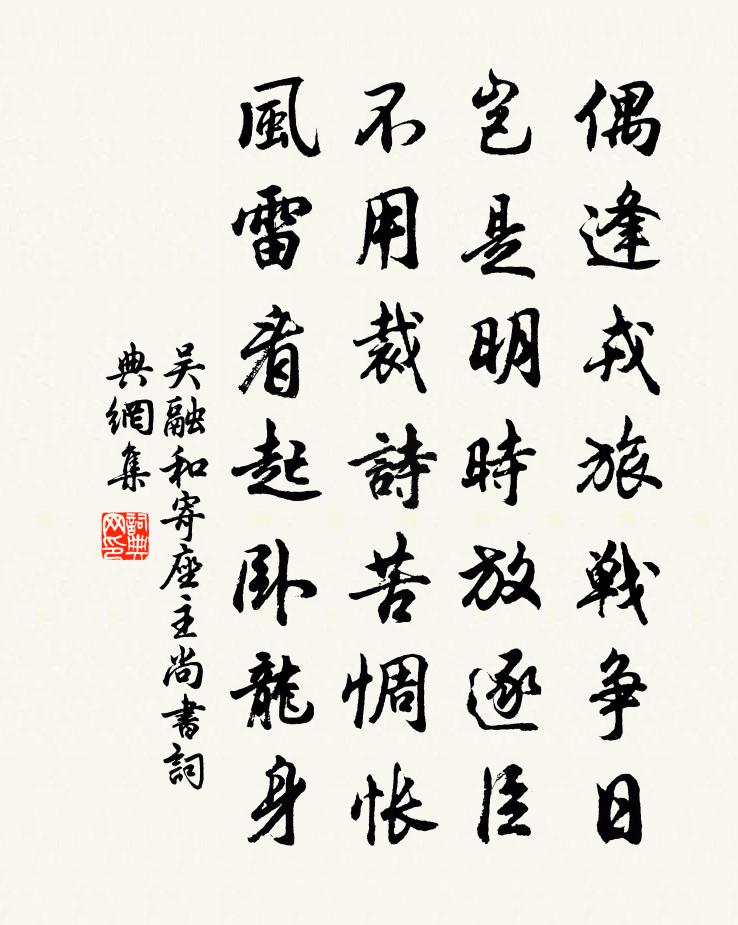 偶逢戎旅戦争日
豈是明時放逐臣
不用裁詩苦惆悵
風雷看起卧龍身
吴融和寄座主尚書詞
典網集
詞典
网印